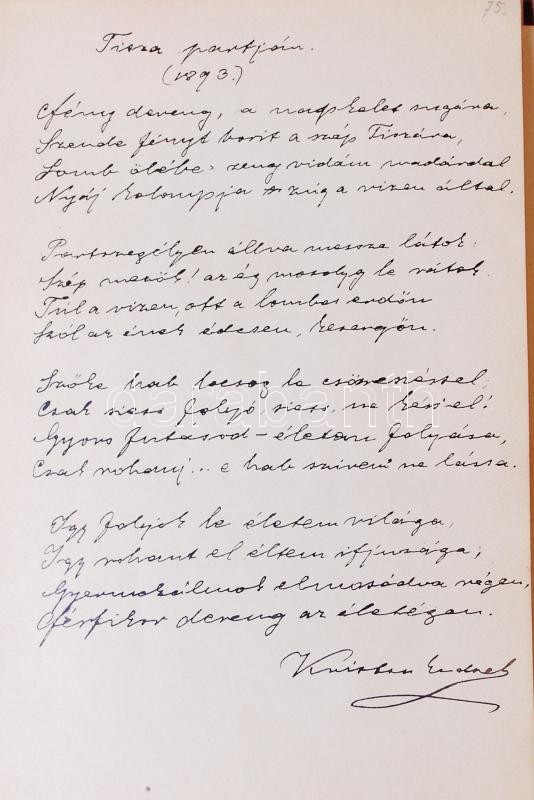 75.
Tisza partján.
(1893.)
Fény dereng, a napkelet sugára,
Szende fényt borit a szép Tiszára,
Lomb ölébe zeng vidám madárdal
Nyáj kolompja zúg a vizen által.
Partszegélyen állva messze látok:
Szép mezők! az ég mosolyg le rátok.
Túl a vizen, ott a lombos erdőn
Szól az ének édesen, kesergőn.
Szőke hab locsog le csörrenéssel;
Csak siess folyó siess, ne késsel!
Gyors futásod - életem folyása,
Csak rohanj... e hab szivem ne lássa.
Igy folyjok le életem világa,
Igy rohant el éltem ifjusága;
Gyermekálmok elmosódva régen,
Férfikor dereng az életégen.
Endre
darabanth